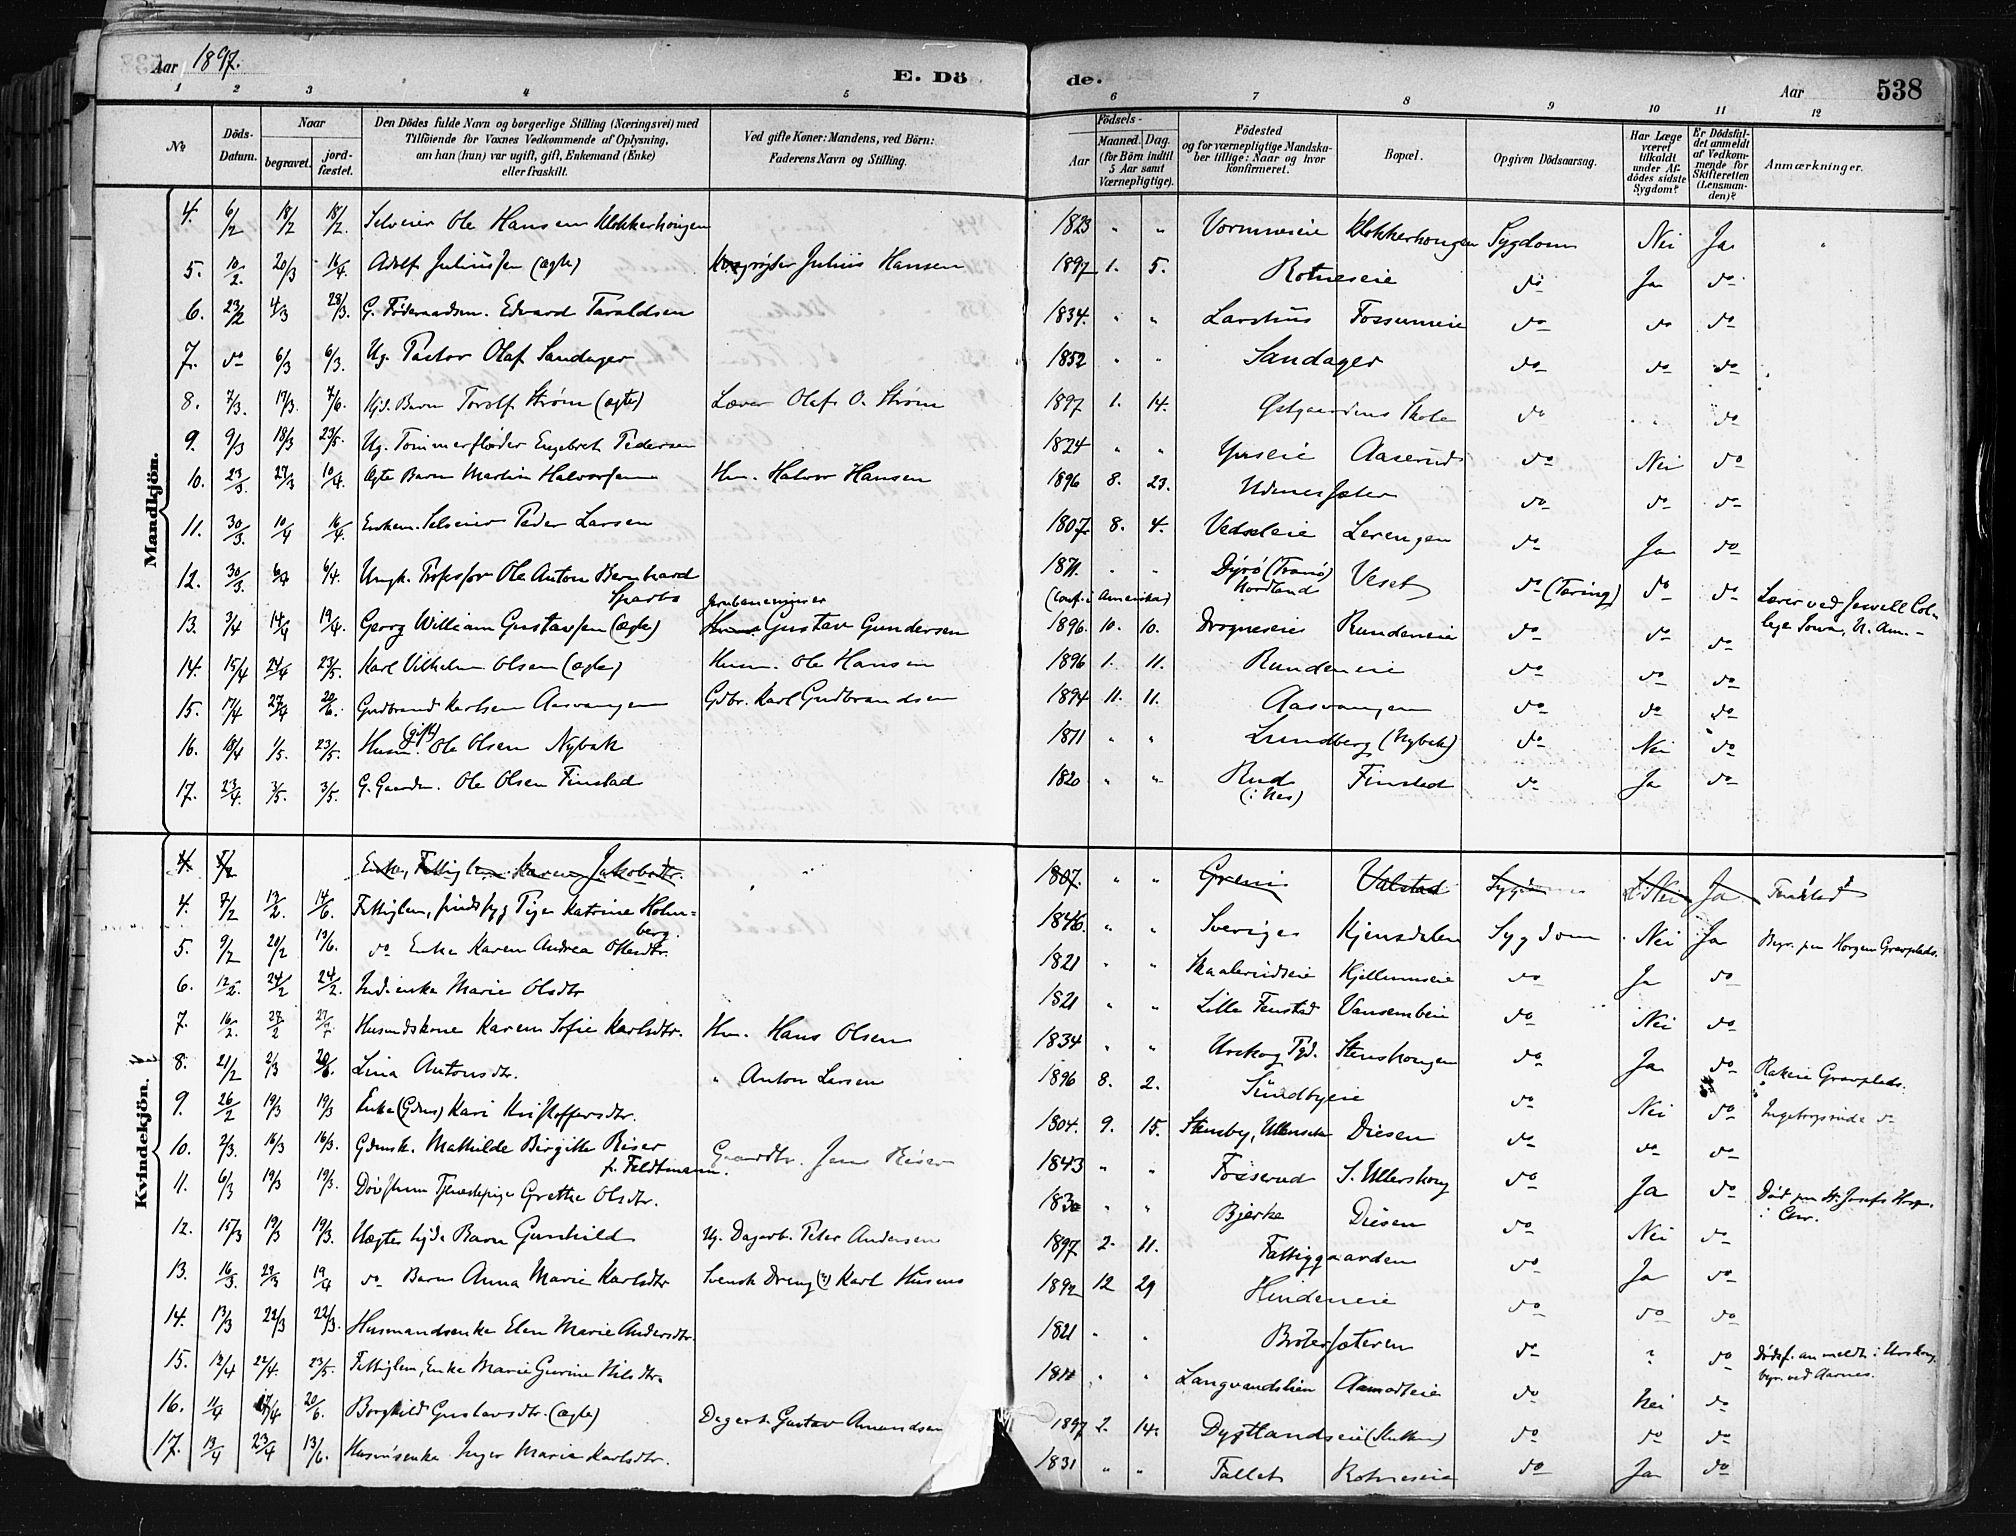 Aar 1897. E. Dö de. Aar 538
1 2 3 4 5 6 7 8 9 10 11 12
No
Döds-Datum.
Naar
begravet.
jord-fæstet.
Den Dödes fulde Navn og borgerlige Stilling (Næringsvei) med
Tilföiende for Voxnes Vedkommende af Oplysning,
om han (hun) var ugift, gift, Enkemand (Enke)
eller fraskilt.
Ved gifte Koner: Mandens, ved Börn:
Faderens Navn og Stilling.
Födsels-
Aar
Maaned. Dag.
(for Börn indtil
5 Aar samt
Værnepligtige).
Födested
og for værnepligtige Mandska-
ber tillige: Naar og hvor
konfirmeret.
Bopæl.
Opgiven Dödsaarsag.
Har Læge
været
tilkaldt
under Af-
dödes sidste
Sygdom?
Er Dödsfal-
det anmeldt
af Vedkom-
mende for
Skifteretten
(Lensman-
den)?
Anmærkninger.
Mandkjön.
4. 6/2 18/2 18/2. Selveier Ole Hansen Klokkerhougen 1823 " " Vormneseie Klokkerhougen Sygdom Nei Ja "
5. 10/2. 20/3 16/4. Adolf Juliussen (ægte) Julius Hansen 1897 1. 5. Rotneseie do Ja do
6. 23/2 4/3 28/3. G. Föderaadsm. Edvard Taraldsen 1834. " " Larshus Fossumeie do do do
7. do 6/3 6/3. Ug. Pastor Olaf Sandager 1852 " " Sandager do do do
8. 7/3. 19/3. 7/6. Hjd. Barn Torolf Strøm (ægte) Lærer Olaf O. Strøm 1897 1. 14. Østgaardens Skole do " do
9. 9/3 18/3 23/5. Ug. Tømmerfløder Engebret Pedersen 1824 " " Ynseie Aaserud do Nei do
10. 23/3. 27/3 10/4. Ægte Barn Martin Halvorsen Hm. Halvor Hansen 1896 8. 23. Udnessæter do do do
11. 30/3. 10/4 16/4. Enkem. Selveier Peder Larsen 1807. 8. 4. Lerengen do Ja do
12. 30/3. 6/4 6/4. Ungk. Professor Ole Anton Bernhard Sparbo 1871. " " (Conf. i Amerika) Dyrø (Tranø) Nordland Veset do (Tæring) do do Lærer ved Jewell Col-
lege Iowa, N. Am. -
13. 3/4 14/4 19/4. Georg William Gustavsen (ægte) Gustav Gundersen 1896. 10. 10. Drogneseie Rundeneie do do do
14. 15/4 24/4 23/5. Karl Vilhelm Olsen (ægte) Husm. Ole Hansen 1896 1. 11. Rundeneie do do do
15. 17/4 27/4 20/6. Gudbrand Karlsen Aasvangen Gdbr. Karl Gudbrandsen 1894 11. 11. Aasvangen do do do
16. 18/4 1/5. 23/5. Husm. (gift) Ole Olsen Nybak 1811 " " Lundberg (Nybak) do Nei do
17. 23/4. 3/5. 3/5. G. Gaardm. Ole Olsen Finstad 1820 " " Rud (i Nes) Finstad do Ja do
Kvindekjön.
4 Enke, Fattiglem Karen Jakobsdtr. 1807. " " Greni Valstad Sygdom Nei Ja
4. 7/2 19/2. 14/6. Fattiglem, sindssyg Pige Katrine Holm-
berg. 1846. " " Sverige Kjensdalen Sygdom Nei Ja Begr. paa Horgen Gravplads.
5. 9/2 20/2 13/6. do Enke Karen Andrea Olsdtr. 1821 " " Skaalerudseie Kjellumseie do Ja do
6. 12/2. 24/2 24/2. Ind. enke Marie Olsdtr 1821 " " Lille Fenstad Vansembeie do Nei do
7. 16/2. 27/2 27/2 Husmdskone Karen Sofie Karlsdtr. Hm. Hans Olsen 1834 " " Urskog Pgd. Stenshougen do Ja do Rakeie Gravplads.
8. 21/2 2/3 20/6. Lina Antonsdtr. " Anton Larsen 1896 8. 2. Sundbyeie do Nei do Ingeborgsrud do
9. 26/2 19/3 19/3 Enke (Gdms) Kari Kristoffersdtr. 1804. 9. 15. Stensby, Ullensaker Diesen do do do
10. 2/3. 16/3 16/3. Gdmsk. Mathilde Birgitte Riser
f. Feldtmann. Gaardbr. Jens Riser 1843 " " Fosserud S. Ullershoug do Ja do Død paa St. Josefs Hosp.
i Chr.
11. 6/3 19/3 19/3. Døvstum Tjenestepige Grethe Olsdtr. 1830 " " Bjerke Diesen do Nei do
12. 15/3 19/3 19/3. Uægte Barn Gunhild Ug. Dagarb. Peter Andersen 1897 2. 11. Fattiggaarden do Ja do
13. 16/3. 29/3 19/4 do Barn Anna Marie Karlsdtr Svensk Dreng (?) Karl 1892 12 29 Hindeneie do do do
14. 13/3 22/3 22/3. Husmandsenke Elen Marie Andersdtr. 1821 " " Brotersæteren do ? do Dødsf. anmeldt i Urskoug,
begr. ved Aarnes.
15. 12/4 22/4. 23/5. Fattiglem, Enke Marie Gurine Nilsdtr. " " Langvandslien Aamodteie do Nei do
16. 11/4 17/4 20/6. Borghild Gustavsdtr. (ægte) Dagarb. Gustav Amundsen 1897 2. 14. Dystlandseie do do do
17. 13/4 23/4 13/6. Husmdsenke Inger Marie Karlsdtr. 1831 " " Fallet Rotneseie do Ja do